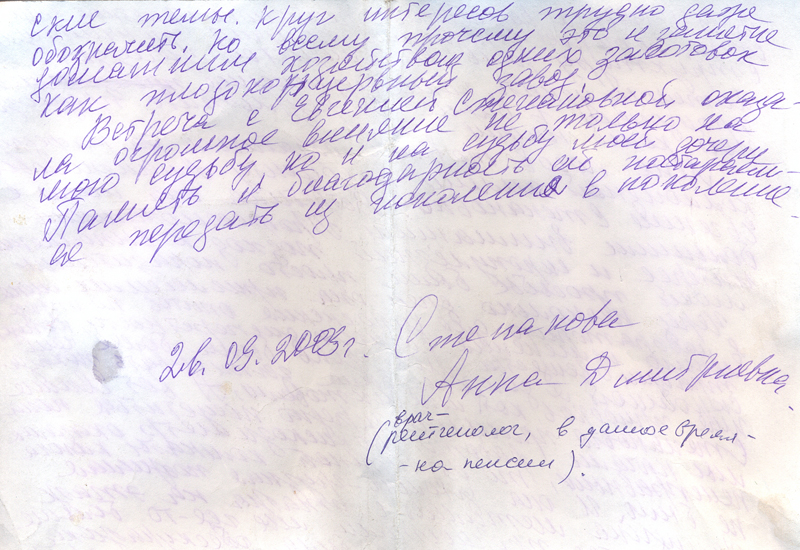 ские темы. Круг интересов трудно даже
обозначить, ко всему прочему это и занятие
домашним хозяйством, одних заготовок
как плодоконцервный завод.
Встреча с Евгенией Степановной оказа-
ла огромное влияние не только на
мою судьбу но и на судьбу моей дочери.
Память и благодарность ей постараем-
ся передать из поколения в поколение.
26. 09. 2003 г. Степанова
Анна Дмитриевна.
врач-
(рентгенолог, в данное время-
- на пенсии).